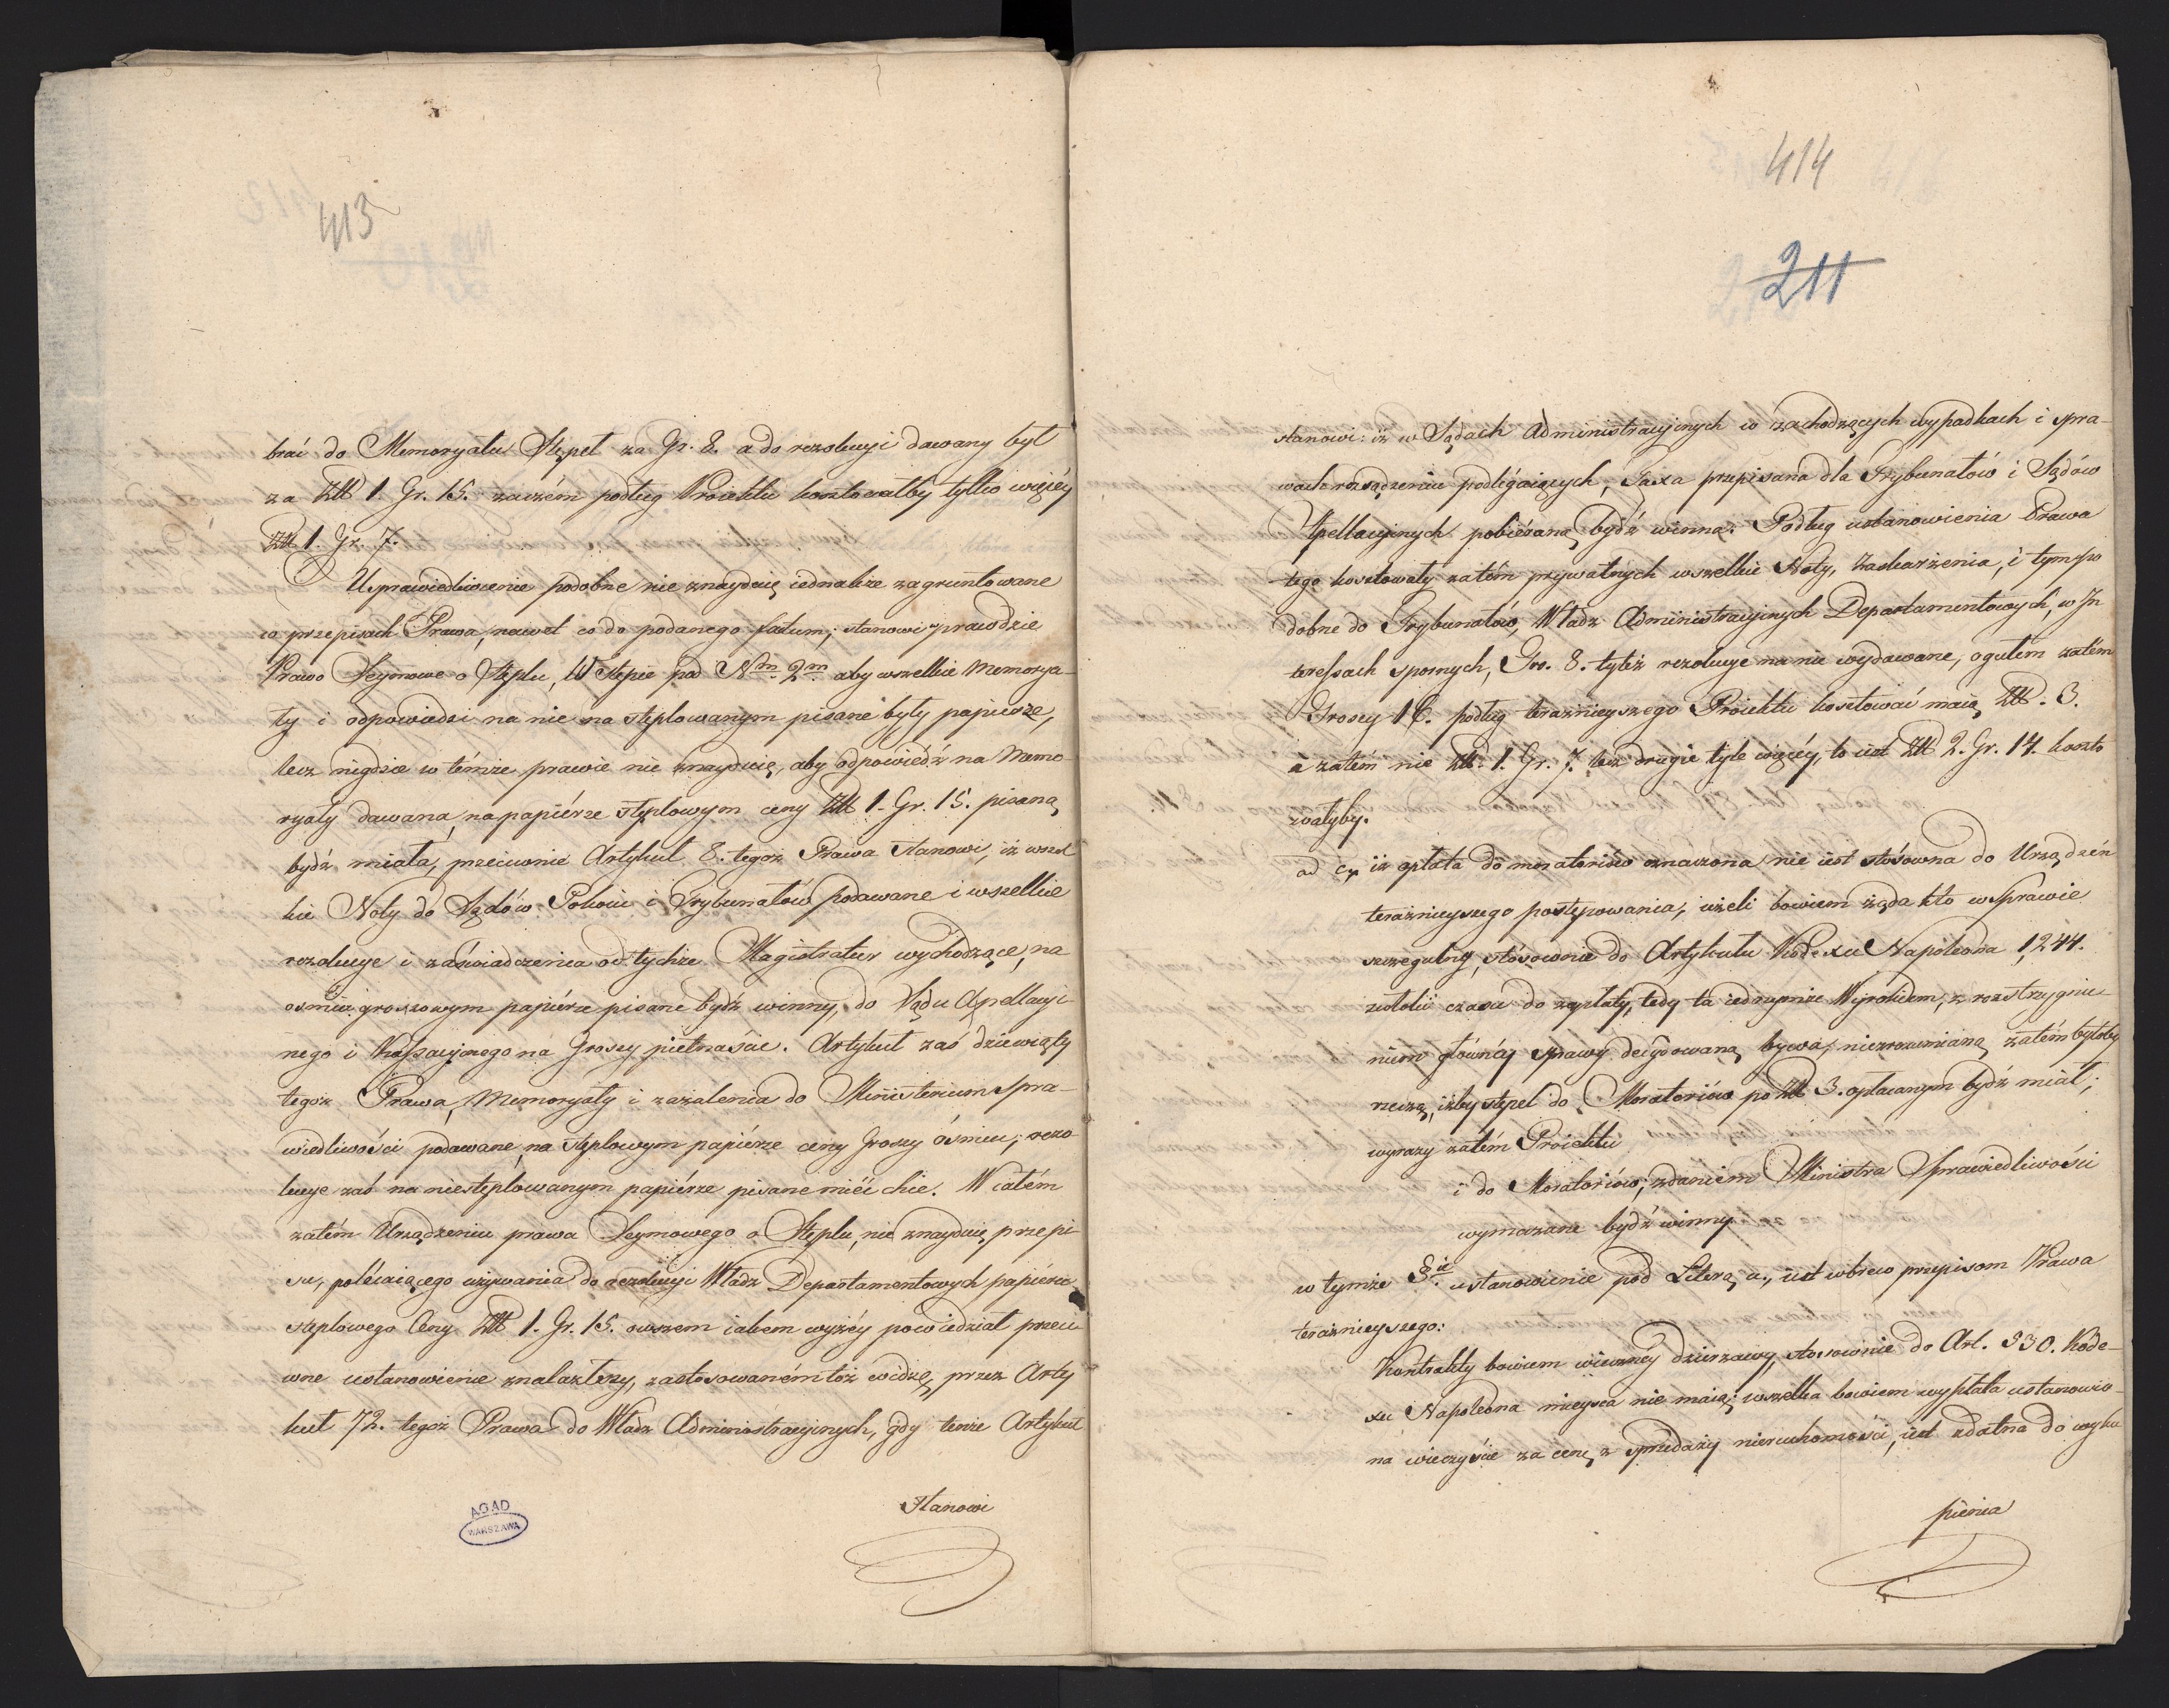 413
brać do Memoryału Stępel za Gr. 8. a do rezolucyi dawany był
za Złł 1. Gr. 15. zaczém podług Proiektu kosztowałby tylko więcéy
Złł 1. Gr. 7.
Usprawiedliwienie podobne nie znayduię iednakże zagruntowane
w przepisach Prawa, nawet co do podanego fatum; stanowi wprawdzie
Prawo Seymowe o Stęplu, W Stępie pod Nm 2m aby wszelkie Memorya-
ły i odpowiedzi na nie na stęplowanym pisane były papierze,
lecz nigdzie w témże prawie nie znayduię, aby odpowiédź na Memo-
ryały dawana, na papiérze stęplowym ceny Złł 1. Gr. 15. pisaną
bydź miała, przeciwnie Artykuł 8. tegoż Prawa stanowi, iż wszel
kie Noty do Sądów Pokoiu i Trybunałów podawane i wszelkie
rezolucye i zaświadczenia od tychże Magistratur wychodzące, na
ośmiu groszowym papiérze pisane bydź winny, do Sądu Apellacyi-
nego i Kassacyinego na Groszy piętnaście. Artykuł zaś dziewiąty
tegoż Prawa, Memoryały i zażalenia do Ministerium Spra-
wiedliwości podawane, na stęplowym papiérze ceny Groszy ośmiu; rezo
lucye zaś na niestęplowanym papiérze pisane miéć chce. W całém
zatém Urządzeniu prawa Seymowego o Stęplu, nie znayduię przepi
su, polécaiącego używania do rezolucyi Władz Departamentowych papieru
stęplowego Ceny Złł 1. Gr. 15. owszem iakem wyżéy powiedział przeci
wne ustanowienie znalazłszy, zastosowaném toż widzę, przez Arty
kuł 72. tegoż Prawa do Władz Administracyinych, gdy tenże Artykuł
Stanowi
AGAD
WARSZAWA
414
211
stanowi: iż w Sądach Administracyinych w zachodzących wypadkach i spra-
wach rozsądzeniu podlégaiących, Taxa przepisana dla Trybunałów i Sądów
Apellacyinych pobiéraną bydź winna. Podług ustanowienia Prawa
tego kosztowały zatém prywatnych wszelkie Noty, Zaskarżenia, i tym po
dobne do Trybunałów, Władz Administracyinych Departamentowych, w In
teressach spornych, Gro. 8. tyleż rezolucye na nie wydawane, ogułem zatém
Groszy 16. podług teraźnieyszego Proiektu kosztować maią Złł. 3.
a zatém nie Złł. 1. Gr. 7. lecz drugie tyle więcéy, to iest Złł 2. Gr. 14. koszto
wałyby.
ad c, iż opłata do moratoriów oznaczona nie iest stósowna do Urządzeń
teraźnieyszego postępowania, ieżeli bowiem żąda kto w sprawie
szczegulney, stósownie do Artykułu Kodexu Napoleona 1,244.
zwłoki czasu do zapłaty, tedy ta iednymże Wyrokiem, z rozstrzygnie-
niem głównéy sprawy decydowaną bywa, niezrozumianą zatém byłoby
rzeczą, iżby stępel do Moratoriów po Złł 3. opłacanym bydź miał;
wyrazy zatém Proiektu
i do Moratoriów; zdaniem Ministra Sprawiedliwości
wymazane bydź winny.
w tymże §ie ustanowienie pod Literą a, iest wbrew przepisom Prawa
teraźnieyszego:
Kontrakty bowiem wieczney dzierżawy, stosownie do Art. 530. Kode-
xu Napoleona mieysca nie maią; wszelka bowiem wypłata ustanowio-
na wieczyście za cenę z sprzedaży nieruchomości, iest zdatna do wyku
pienia